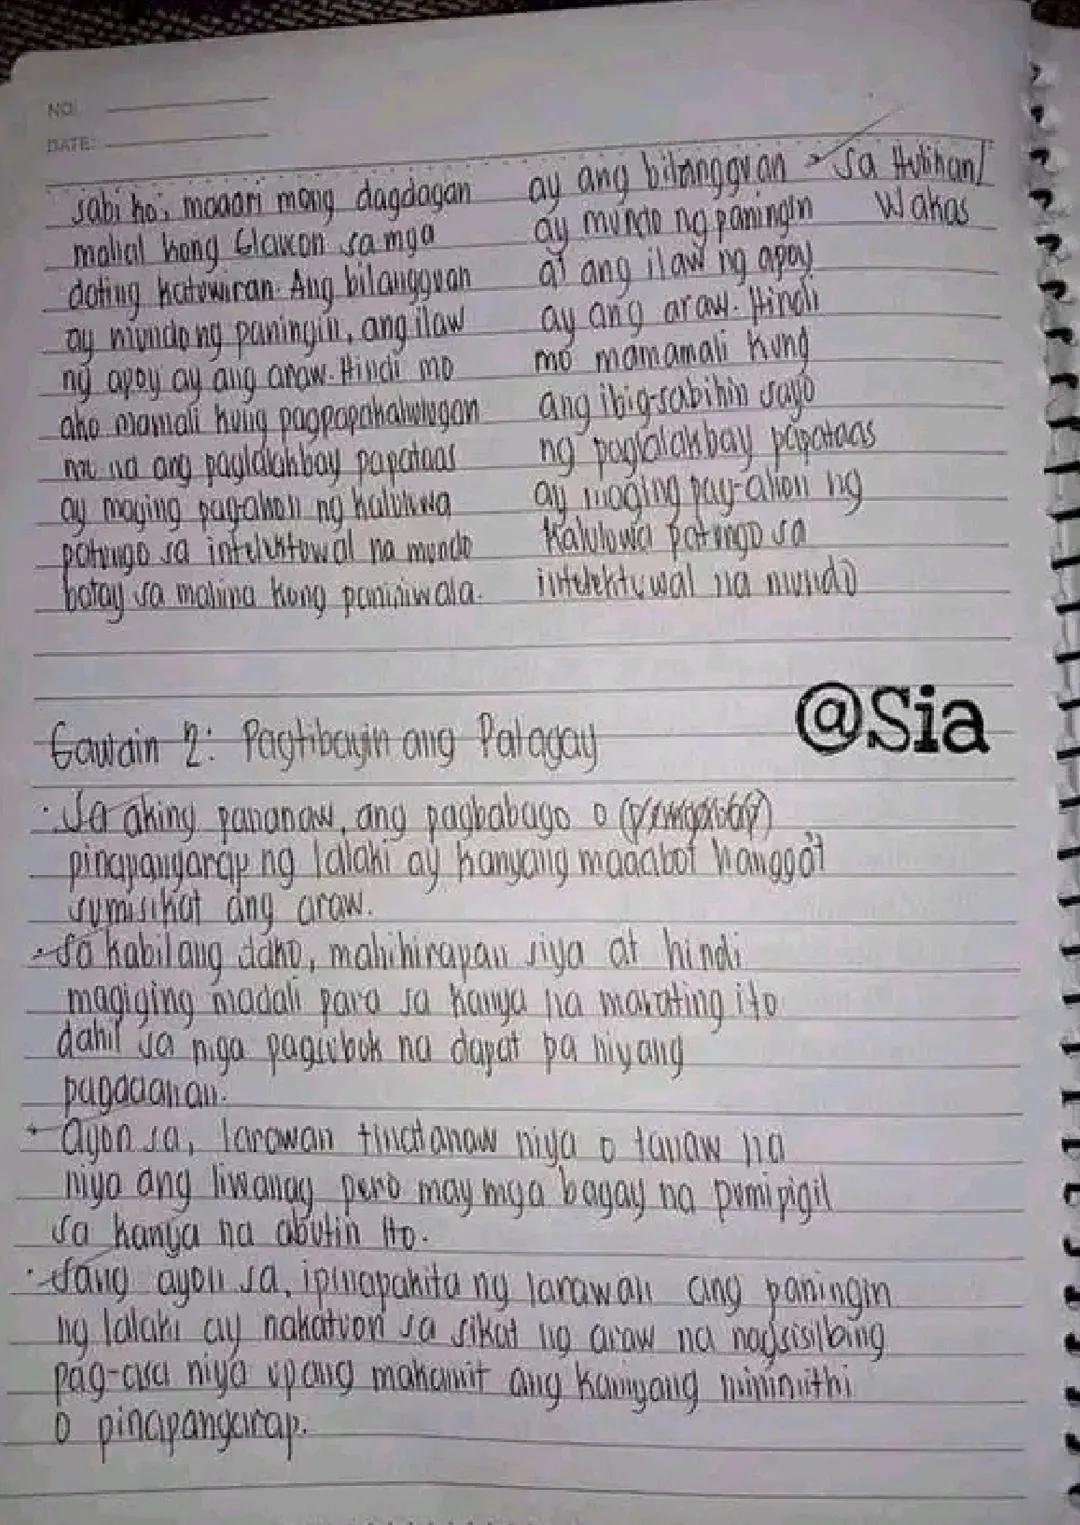 NO:
DATE:
sabi ko; maaari mong dagdagan
malial kong Glaucon sa mga
dating katuwiran. Ang bilangguan
ay mundo ng paningin, ang ilaw
ng apoy ay ang araw. Hindi mo
ako mamali kung pagpapakahulugan
mo na ang paglalakbay papataas
ay maging pag-ahon ng kaluluwa
patungo sa intelektuwal na mundo
batay sa mahina kong paniniwala.
ay ang bilangguan → Sa Hulihan/
ay mundo ng paningin Wakas
at ang ilaw ng apoy
ay ang araw. Hindi
mo mamamali kung
ang ibig-sabihin sayo
ng paglalakbay papataas
ay maging pag-ahon ng
Kaluluwa patungo sa
intelektuwal na mundo
@Sia
Gawain 2: Pagtibayin ang Palagay
· Sa aking pananaw, ang pagbabago o
pinapangarap ng lalaki ay kanyang maaabot hanggat
sumisikat ang araw.
· Sa kabilang dako, mahihirapan siya at hindi
magiging madali para sa kanya na marating ito
dahil sa mga pagsubok na dapat pa niyang
pagdaanan.
· Ayon sa, larawan tinatanaw niya o tanaw na
niya ang liwanag pero may mga bagay na pumipigil
sa kanya na abutin ito.
· Sang ayon sa, ipinapakita ng larawan ang paningin
ng lalaki ay nakatuon sa sikat ng araw na nagsisilbing
pag-asa niya upang makamit ang kanyang minimithi
o pinapangarap.